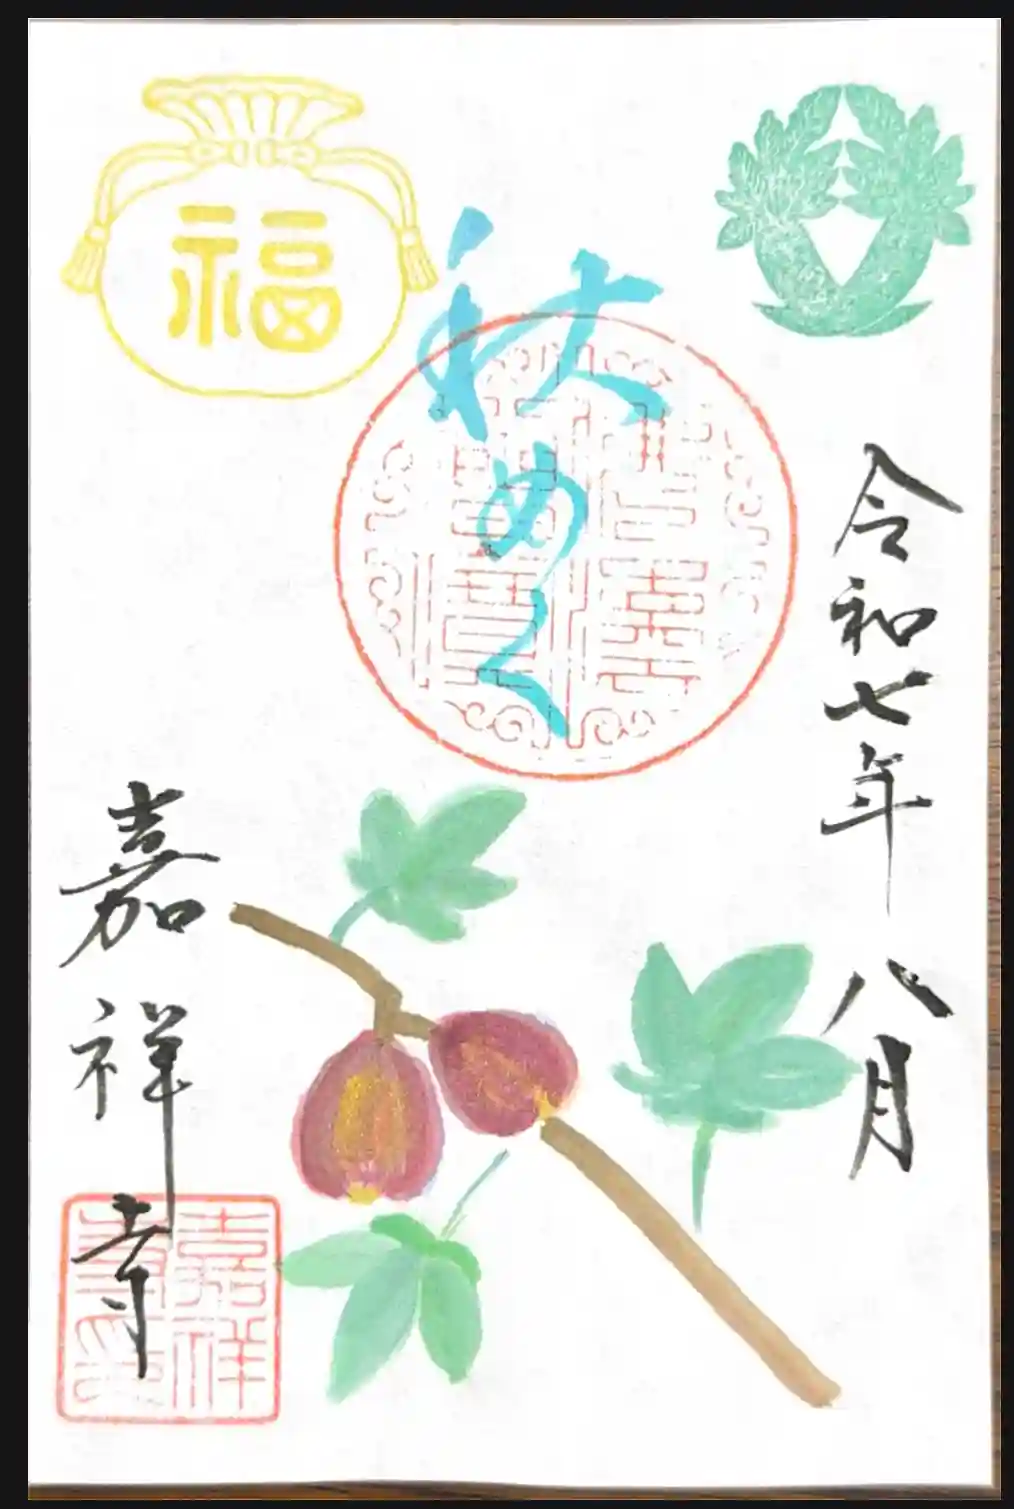 令和七年 八月
秋めく
福
嘉祥寺
嘉祥
寺印